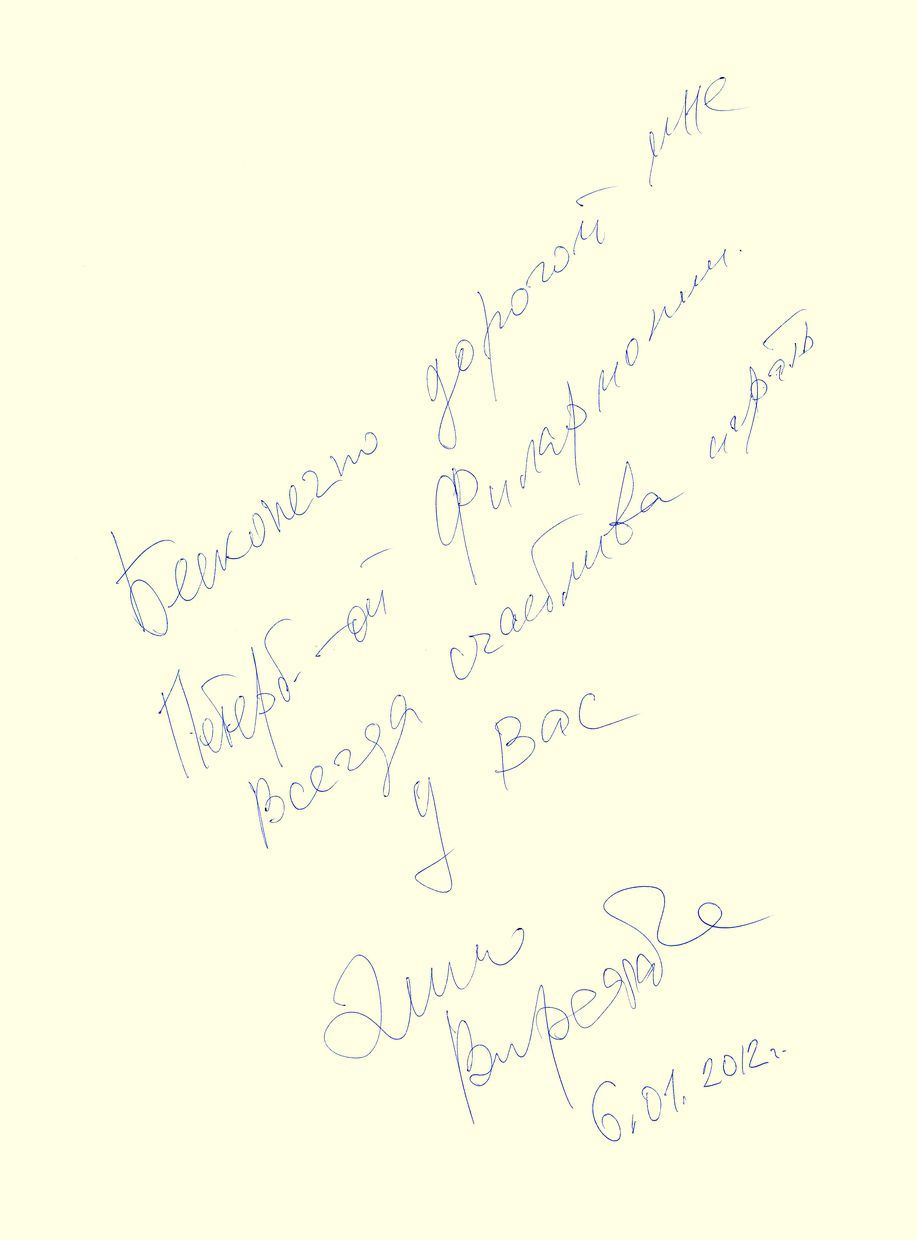 Бесконечно дорогой мне
Петерб-ой Филармонии.
Всегда счастлива играть
у Вас
Элисо
Вирсаладзе
6.01.2012г.